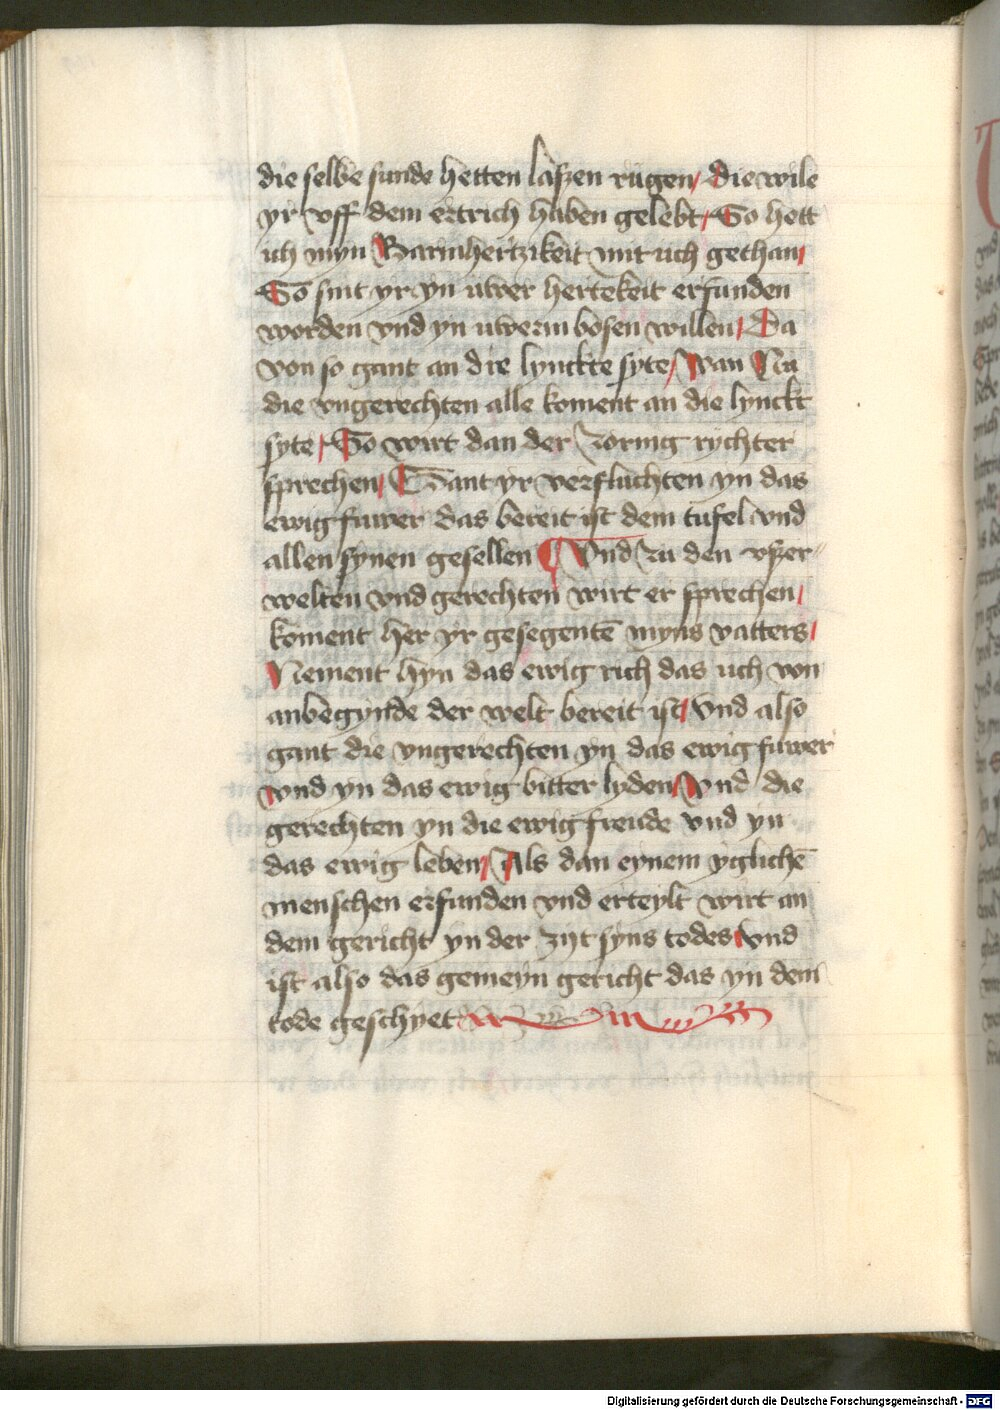 die selbe sunde hetten laszen rugen / die wile
yr vff dem ertrich haben gelebt / So hett
ich myn Barmhertzikeit mit uch gethan /
So sint yr yn uwer hertekeit erfunden
worden vnd yn uwerm bosen willen / Da
von so gant an die lynckte syte / Wan Nu
die vngerechten alle koment an die lynckt
syte / So wirt dan der zornig rychter
sprechen / Gant yr verfluchten yn das
ewig fuwer das bereit ist dem tufel vnd
allen synen gesellen ¶ Vnd zu den vszer
welten vnd gerechten wirt er sprechen /
koment her yr gesegentē myns vatters /
Nement hyn das ewig rich das uch von
anbegynde der welt bereit ist / Vnd also
gant die vngerechten yn das ewig fuwer
vnd yn das ewig bitter lyden / Vnd die
gerechten yn die ewig freude vnd yn
das ewig leben / Als dan eynem yglichē
menschen erfunden vnd erteylt wirt an
dem gericht yn der zyt syns todes / Vnd
ist also das gemeyn gericht das yn dem
tode geschyet
Digitalisierung gefördert durch die Deutsche Forschungsgemeinschaft - DFG